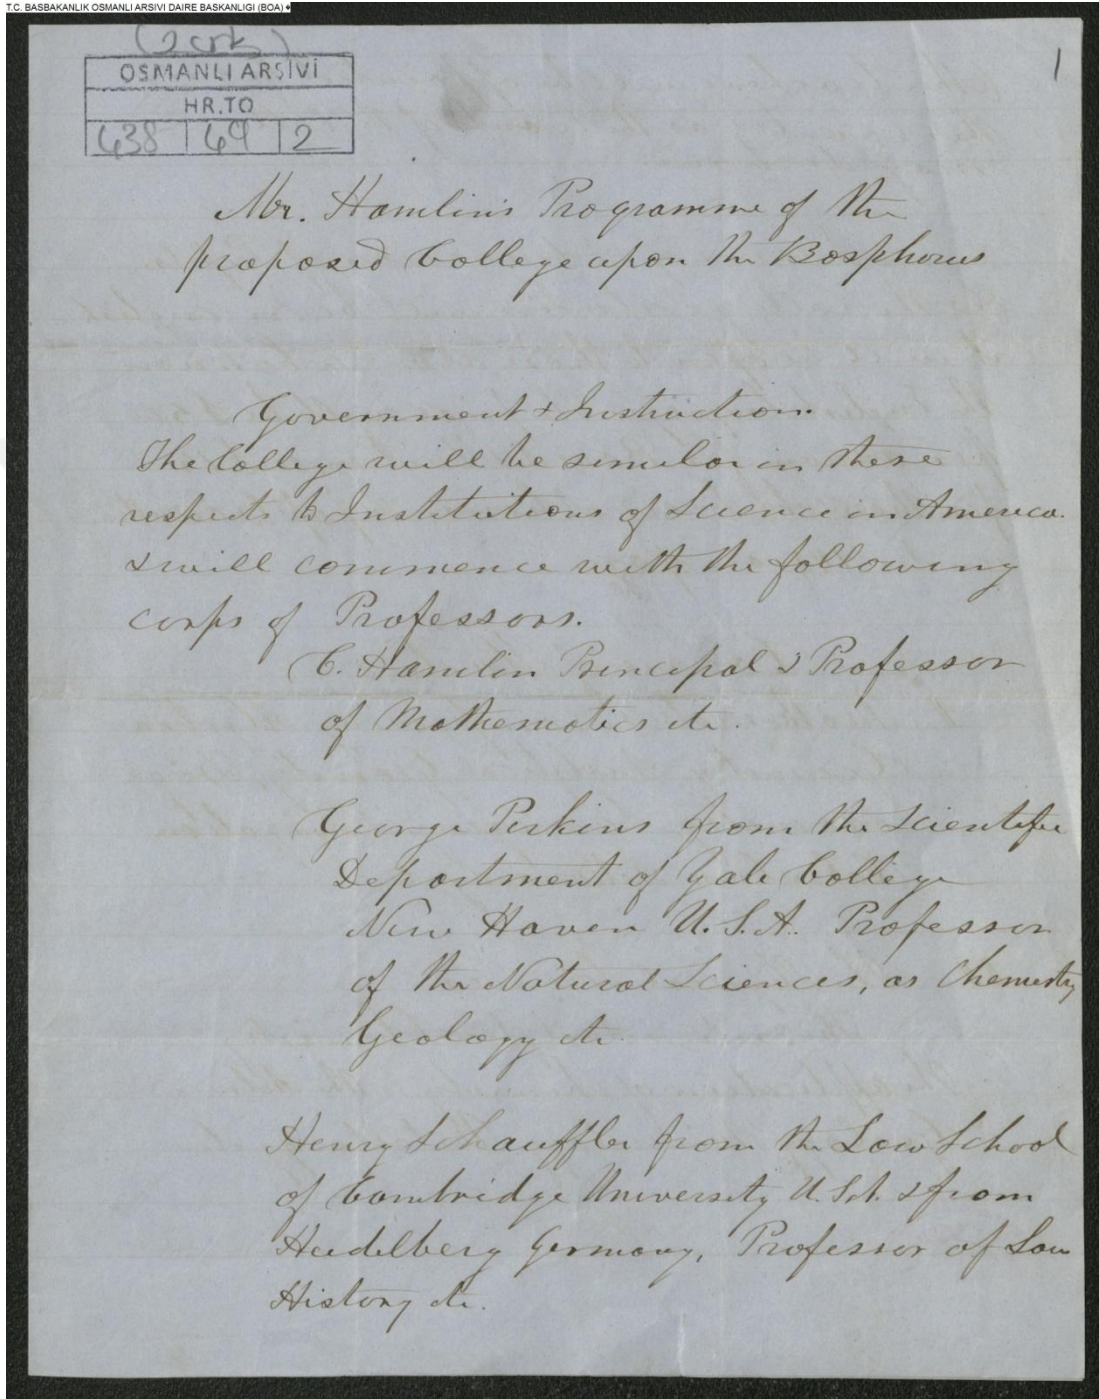 T.C. BASBAKANLIK OSMANLI ARSIVI DAIRE BASKANLIGI (BOA)
OSMANLI ARŞİVİ
HR.TO
438 69 2
1
Mr. Hamlin's Programme of the
proposed College upon the Bosphorus
Government & Instruction.
The College will be similar in these
respects to Institutions of Science in America
& will commence with the following
corps of Professors.
C. Hamlin Principal & Professor
of Mathematics etc.
George Perkins from the Scientific
Department of Yale College
New Haven U.S.A. Professor
of the Natural Sciences, as Chemistry
Geology etc
Henry Schauffler from the Law School
of Cambridge University U.S.A. & from
Heidelberg Germany, Professor of Law
History etc.